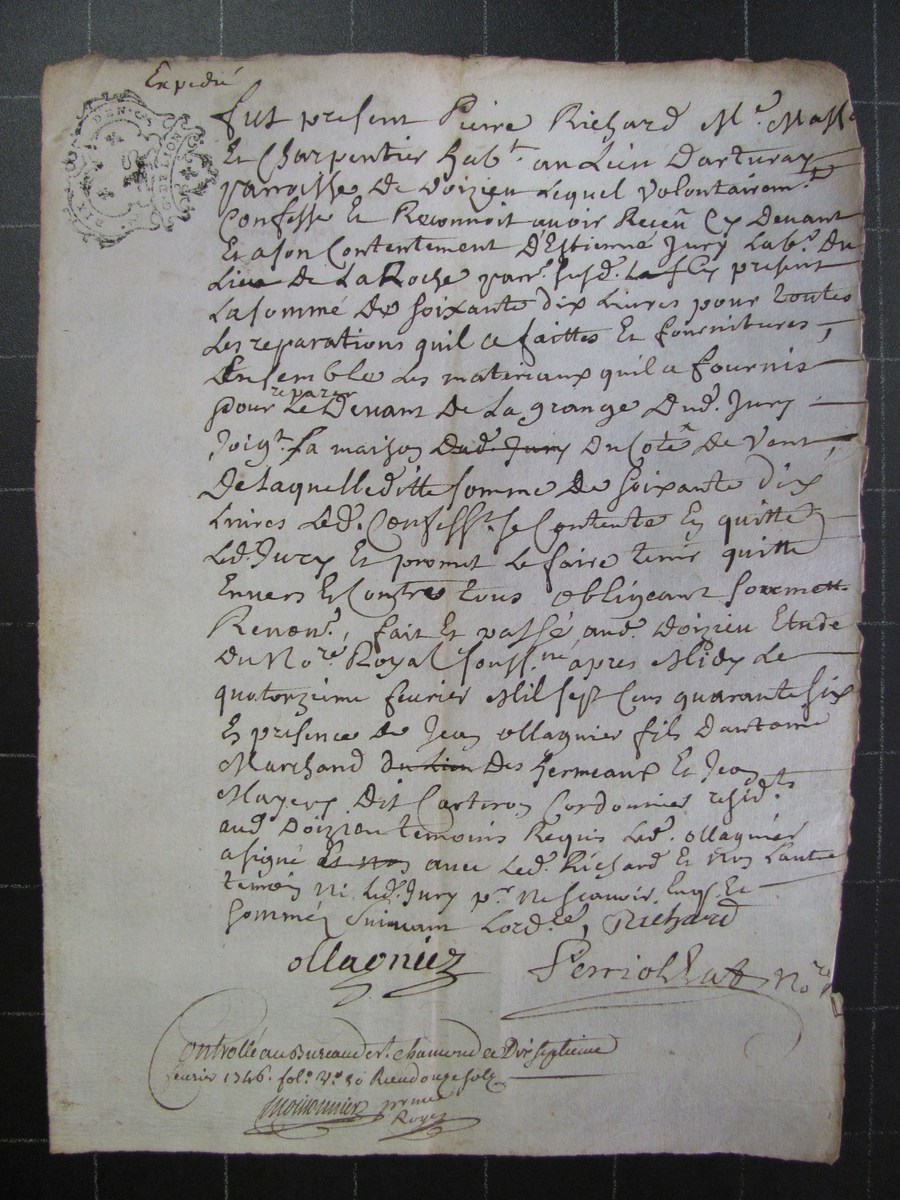 Expedié
GEN. DE LION
Fut present Pierre Richard Me. Masson
Et Charpentier habt. au Lieu Darturay
parroisse de Doizieu Lequel volontairemt.
Confesse Et Reconnoit avoir Receu Cy Devant
Et a son Contentement D'Estienne Jury Labr. du
Lieu de La Roche parr. susd. La Cy present
La somme de soixante dix Livres pour toutes
Les reparations quil a faittes Et fournitures,
Ensemble Les materiaux quil a fournis
reparer
pour Le Devant de La grange Dud. Jury
Joigt. sa maison Dud. Jury Du Coté de Vent,
De Laquelleditte somme de soixante dix
Livres Led. Confesst. se Contente En quitte
Led. Jury Et promet Le faire tenir quitte
Envers Et Contre tous obligeant soumett.
Renonc., fait Et passé aud. Doizieu Etude
Du Nore. Royal souss.né apres Midy Le
quatorzieme fevrier Mil sept Cens quarante six
En presence de Jean ollagnier fils Dantoine
Marchand du Lieu Des hermeaux Et Jean
Mayery Dit Carteron Cordonnier residts.
aud. Doizieu temoins Requis Led. ollagnier
a signé avec Led. Richard Et Non Lautre
temoin Ni Led. Jury pr. Ne scavoir Enqs. Et
sommés suivant Lordce., Richard
ollagniez
Perriolat Nore.
Controllé au Bureau de st. chamond ce Dix septieme
fevrier 1746. fol. vo. 50 Receu douze sols